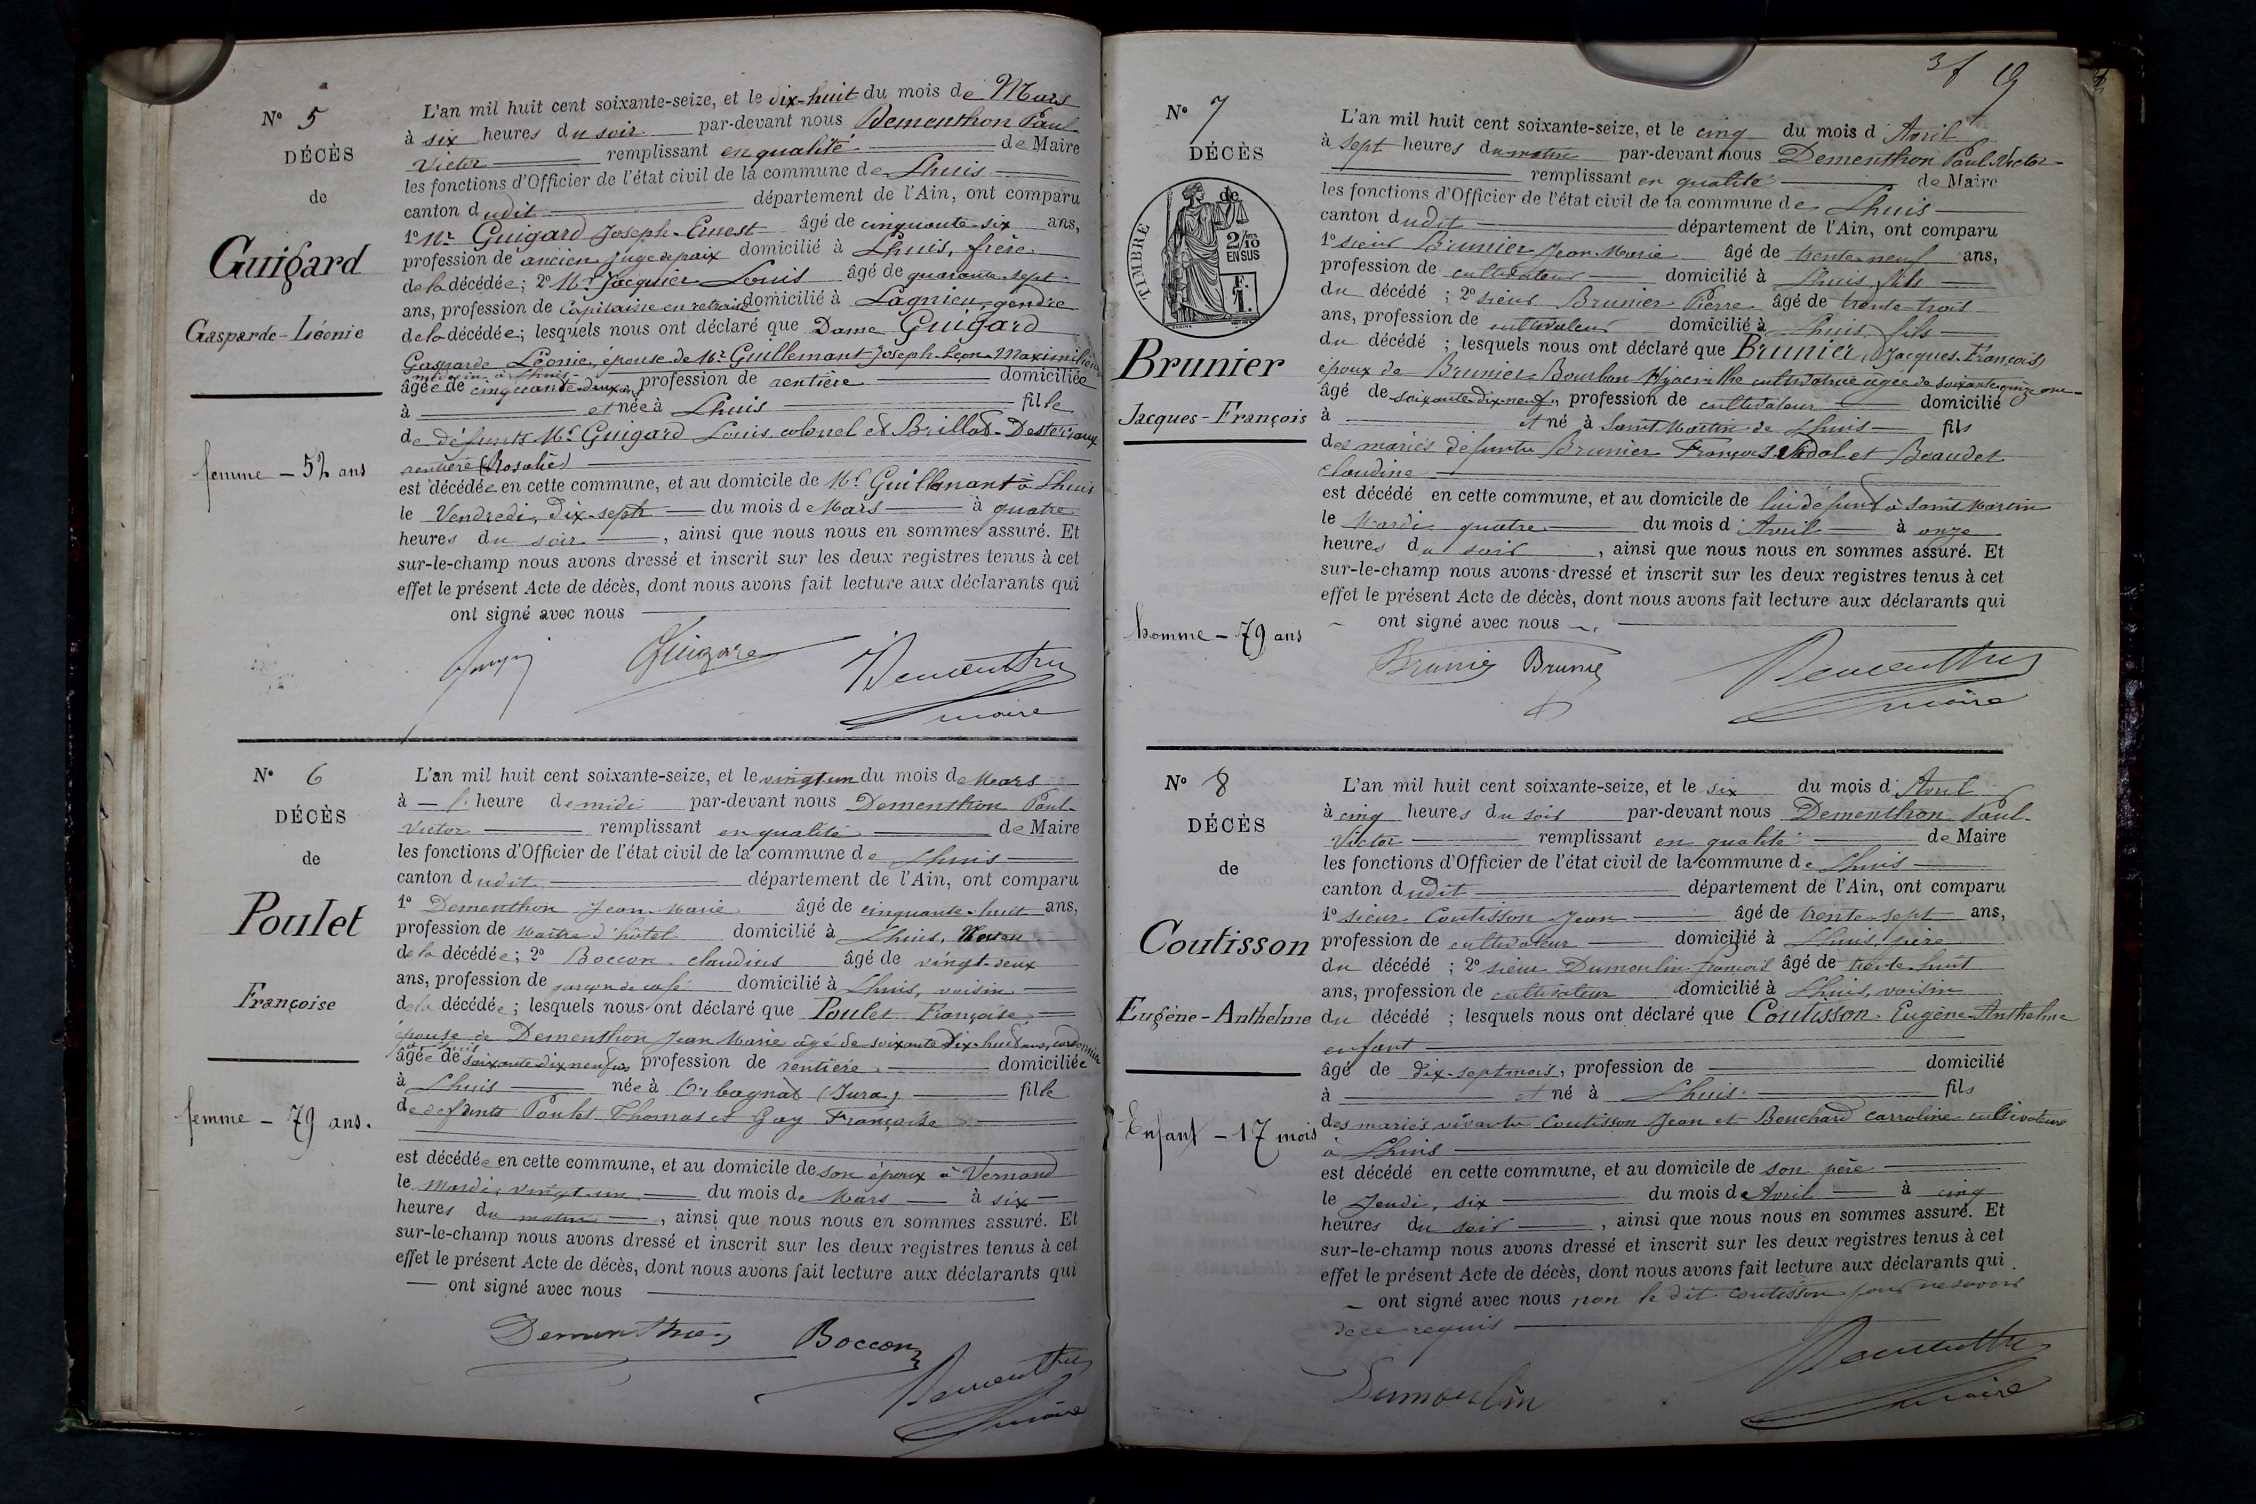 N° 5
DÉCÈS
de
Guigard
Gasparde-Léonie
femme - 52 ans
L'an mil huit cent soixante-seize, et le dix-huit du mois de Mars
à six heures du soir par-devant nous Dementhon Paul-
Victor remplissant en qualité de Maire
les fonctions d'Officier de l'état civil de la commune de Lhuis
canton dudit département de l'Ain, ont comparu
1° Mr Guigard Joseph-Ernest âgé de cinquante-six ans,
profession de ancien juge de paix domicilié à Lhuis, frère
de la décédée; 2° Mr Jacquier Louis âgé de quarante-sept
ans, profession de Capitaine en retraite domicilié à Lagnieu, gendre
de la décédée; lesquels nous ont déclaré que Dame Guigard
Gasparde Léonie, épouse de Mr Guillemant Joseph-Léon-Maximilien
médecin à Lhuis
âgée de cinquante-deux ans, profession de rentière domiciliée
à et née à Lhuis fille
de défunts Mr Guigard Louis, colonel et Brillat-Desterraux
rentière (Rosalie)
est décédée en cette commune, et au domicile de Mr Guillemant à Lhuis
le Vendredi, dix-sept du mois de Mars à quatre
heures du soir, ainsi que nous nous en sommes assuré. Et
sur-le-champ nous avons dressé et inscrit sur les deux registres tenus à cet
effet le présent Acte de décès, dont nous avons fait lecture aux déclarants qui
ont signé avec nous
Guigard Dementhon
maire
N° 6
DÉCÈS
de
Poulet
Françoise
femme - 79 ans.
L'an mil huit cent soixante-seize, et le vingt-un du mois de Mars
à heure de midi par-devant nous Dementhon Paul-
Victor remplissant en qualité de Maire
les fonctions d'Officier de l'état civil de la commune de Lhuis
canton dudit département de l'Ain, ont comparu
1° Dementhon Jean-Marie âgé de cinquante-huit ans,
profession de Maître d'hôtel domicilié à Lhuis,
de la décédée; 2° Boccon claudius âgé de vingt-deux
ans, profession de garçon de café domicilié à Lhuis, voisin
de la décédée; lesquels nous ont déclaré que Poulet Françoise
épouse de Dementhon Jean Marie âgé de soixante dix-huit ans, cordonnier
à Lhuis
âgée de soixante dix neuf ans profession de rentière domiciliée
à Lhuis née à (Jura) fille
de défunts Poulet Thomas et Gay Françoise
est décédée en cette commune, et au domicile de son époux à Vernand
le Mardi, vingt-un du mois de Mars à six
heures du matin, ainsi que nous nous en sommes assuré. Et
sur-le-champ nous avons dressé et inscrit sur les deux registres tenus à cet
effet le présent Acte de décès, dont nous avons fait lecture aux déclarants qui
ont signé avec nous
Dementhon Boccon
Dementhon
maire
19
N° 7
DÉCÈS
de
TIMBRE
2/10
EN SUS
1 F.
Brunier
Jacques-François
homme - 79 ans
L'an mil huit cent soixante-seize, et le cinq du mois d'Avril
à sept heures du matin par-devant nous Dementhon Paul Victor
remplissant en qualité de Maire
les fonctions d'Officier de l'état civil de la commune de Lhuis
canton dudit département de l'Ain, ont comparu
1° sieur Brunier Jean-Marie âgé de trente-neuf ans,
profession de cultivateur domicilié à Lhuis, fils
du décédé ; 2° sieur Brunier Pierre âgé de trente-trois
ans, profession de cultivateur domicilié à Lhuis, fils
du décédé ; lesquels nous ont déclaré que Brunier Jacques-François
époux de Brunier-Bourbon Hyacinthe cultivatrice agée de soixante-quinze ans
âgé de soixante dix-neuf, profession de cultivateur domicilié
à et né à Saint Martin de Lhuis fils
des mariés défunts Brunier François Vidal et Beaudet
claudine
est décédé en cette commune, et au domicile de lui défunt à Saint Martin
le Mardi quatre du mois d'Avril à onze
heures du soir, ainsi que nous nous en sommes assuré. Et
sur-le-champ nous avons dressé et inscrit sur les deux registres tenus à cet
effet le présent Acte de décès, dont nous avons fait lecture aux déclarants qui
ont signé avec nous
Brunier Brunier Dementhon
maire
N° 8
DÉCÈS
de
Coutisson
Eugène-Anthelme
Enfant - 17 mois
L'an mil huit cent soixante-seize, et le six du mois d'Avril
à cinq heures du soir par-devant nous Dementhon Paul-
Victor remplissant en qualité de Maire
les fonctions d'Officier de l'état civil de la commune de Lhuis
canton dudit département de l'Ain, ont comparu
1° sieur Coutisson Jean âgé de trente-sept ans,
profession de cultivateur domicilié à Lhuis, père
du décédé ; 2° sieur Dumoulin françois âgé de trente-huit
ans, profession de cultivateur domicilié à Lhuis, voisin
du décédé ; lesquels nous ont déclaré que Coutisson Eugène-Anthelme
enfant
âgé de dix-sept mois, profession de domicilié
à et né à Lhuis fils
des mariés vivants Coutisson Jean et Bouchard carroline cultivateurs
à Lhuis
est décédé en cette commune, et au domicile de son père
le Jeudi, six du mois de Avril à cinq
heures du soir, ainsi que nous nous en sommes assuré. Et
sur-le-champ nous avons dressé et inscrit sur les deux registres tenus à cet
effet le présent Acte de décès, dont nous avons fait lecture aux déclarants qui
ont signé avec nous non le dit Coutisson pour ne savoir
de ce requis
Dumoulin Dementhon
maire